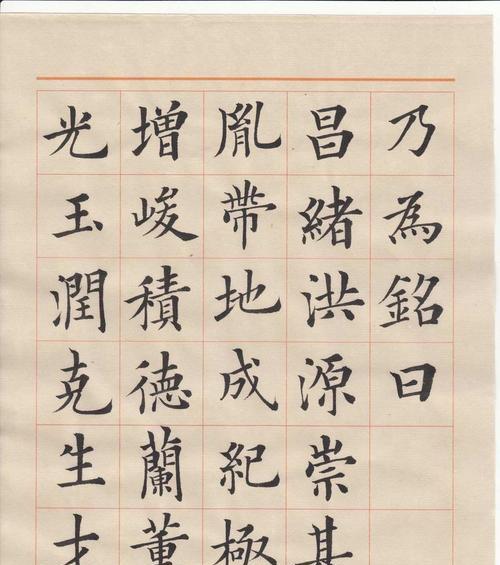 乃為銘曰
昌緒洪源崇基
胤帶地成紀極
增峻積德蘭薰
光玉潤克生才